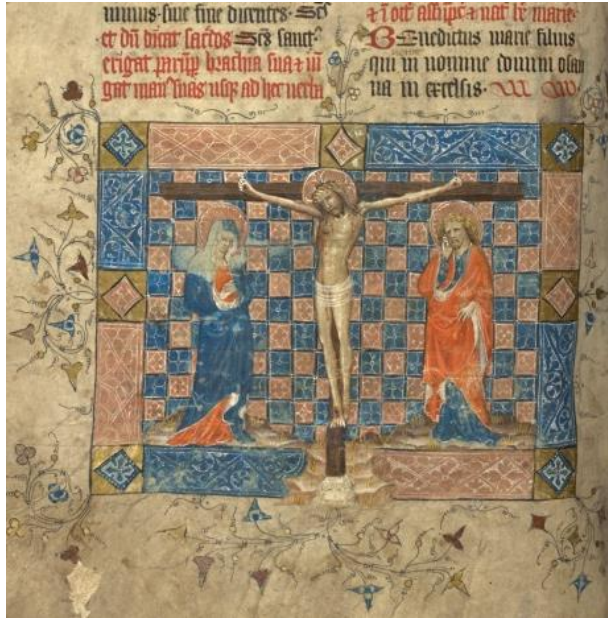 minus· sine fine dicentes· Scs
et dū dicat sacdos Scs sanct
erigat parūp brachia sua et iū
gat man⁹ suas usq; ad hec verba
& ī oct assūpc & nat be marie·
Benedictus marie filius
qui in nomine domini osan
na in excelsis·